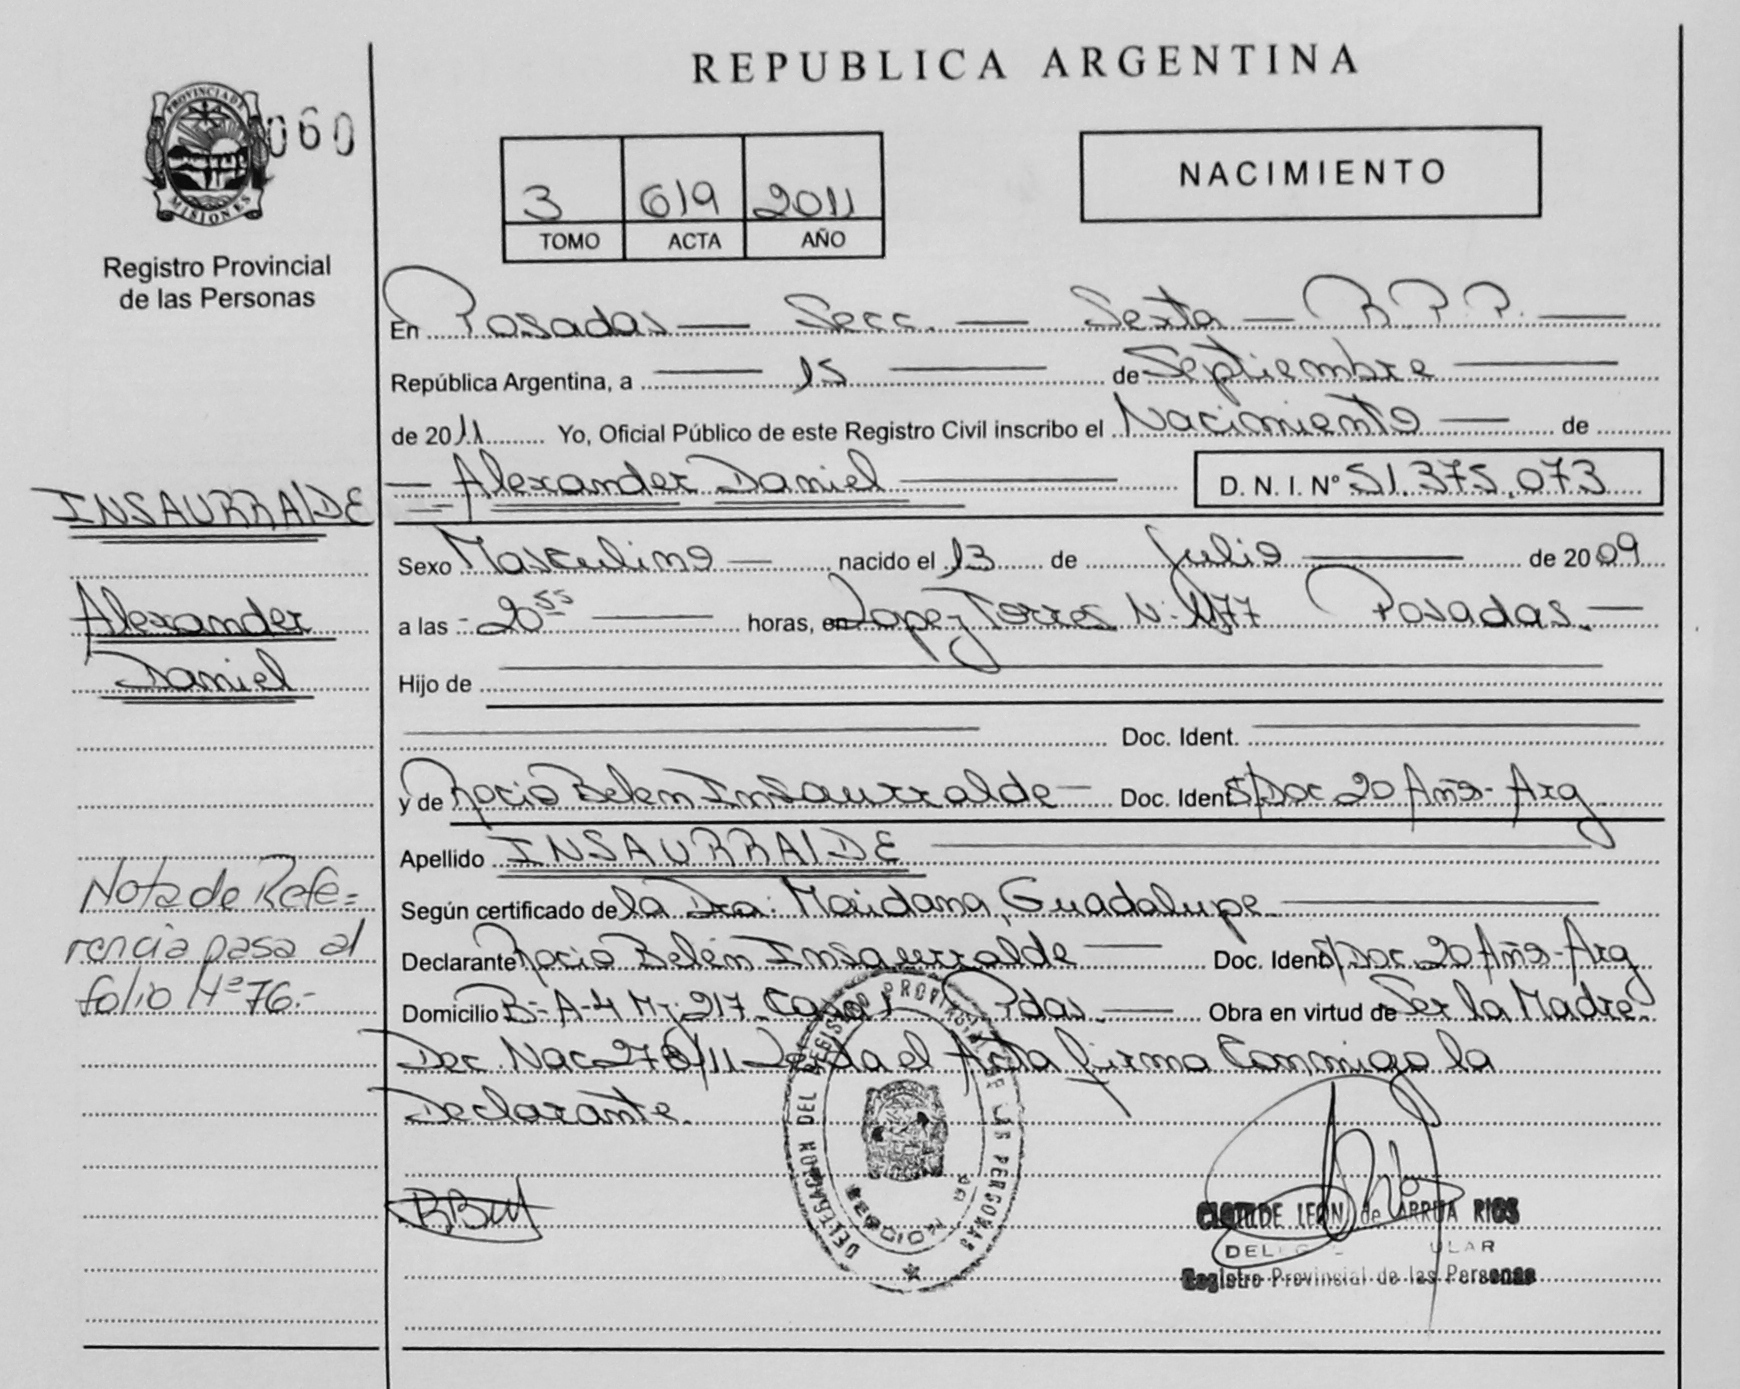 REPUBLICA ARGENTINA
PROVINCIA DE
MISIONES
060
Registro Provincial
de las Personas
3 619 2011
TOMO ACTA AÑO
NACIMIENTO
En Posadas — Secc. — Sexta — R.P.P. —
República Argentina, a — 15 — de Septiembre —
de 2011 Yo, Oficial Público de este Registro Civil inscribo el Nacimiento — de
— Alexander Daniel — D. N. I. Nº 51.375.073
Sexo Masculino — nacido el 13 de Julio — de 2009
a las - 20 55 — horas, en Lopez Torres N: Posadas. —
Hijo de
Doc. Ident.
y de Rocio Belen Insaurralde — Doc. Ident. S/Doc 20 Año - Arg
Apellido INSAURRALDE —
Según certificado de la Dra: Maidana, Guadalupe. —
Declarante Rocio Belén Insaurralde — Doc. Ident. S/Doc. 20 Año - Arg
Domicilio B- A-4 Mz: 217. Casa 1 Pdas. — Obra en virtud de Ser la Madre.
Dec. Nac 278/11 Leida el Acta firma Conmigo la
Declarante.
INSAURRALDE
Alexander
Daniel
Nota de Refe=
rencia pasa al
folio Nº 76.-
DELEGACION DEL REGISTRO PROVINCIAL DE LAS PERSONAS
SECCION 6a
CLOTILDE LEON de ARRUA RIOS
Registro Provincial de las Personas